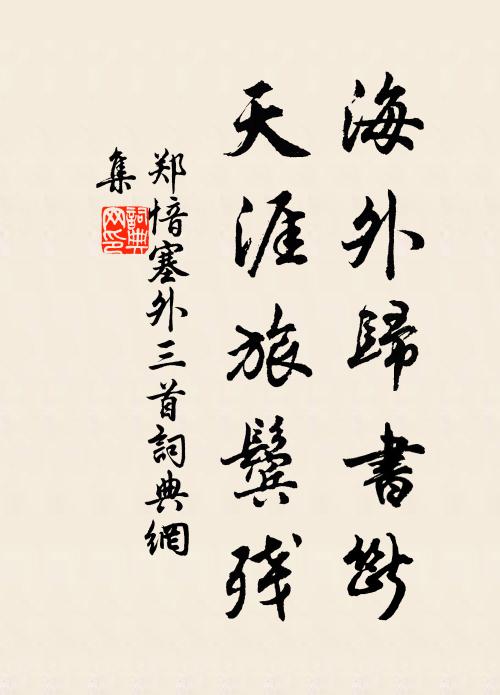 海外歸書斷
天涯旅鬢残
郑愔塞外三首詞典網
集
詞典
网印